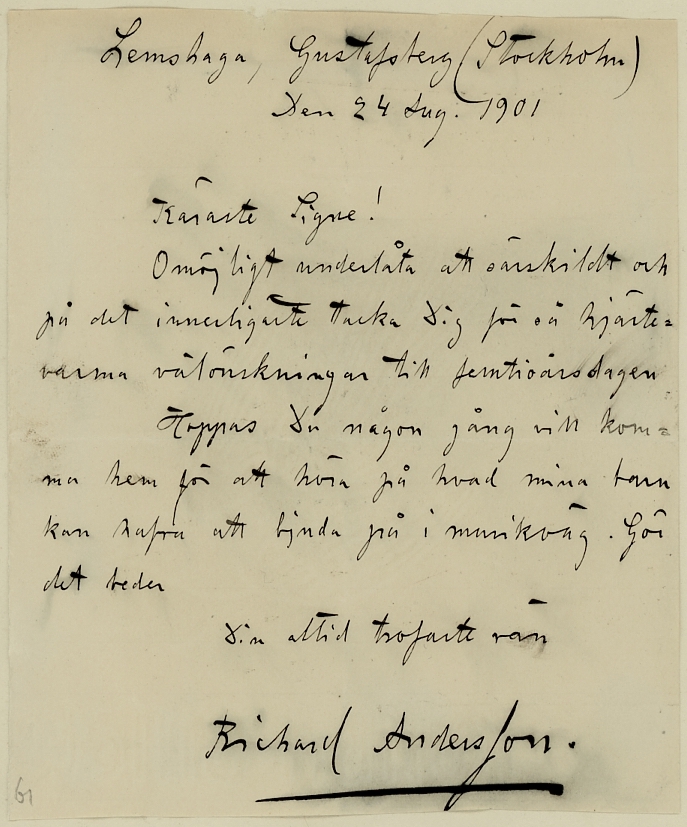 Lemshaga, Gustafsberg (Stockholm)
Den 24 Aug. 1901
Käraste Signe!
Omöjligt underlåta att särskildt och
på det innerligaste tacka Dig för så hjärte=
varma välönskningar till femtioårsdagen
Hoppas Du någon gång vill kom=
ma hem för att höra på hvad mina barn
kan hafva att bjuda på i musikväg. Gör
det beder
Din alltid trofaste vän
Richard Andersson.
61